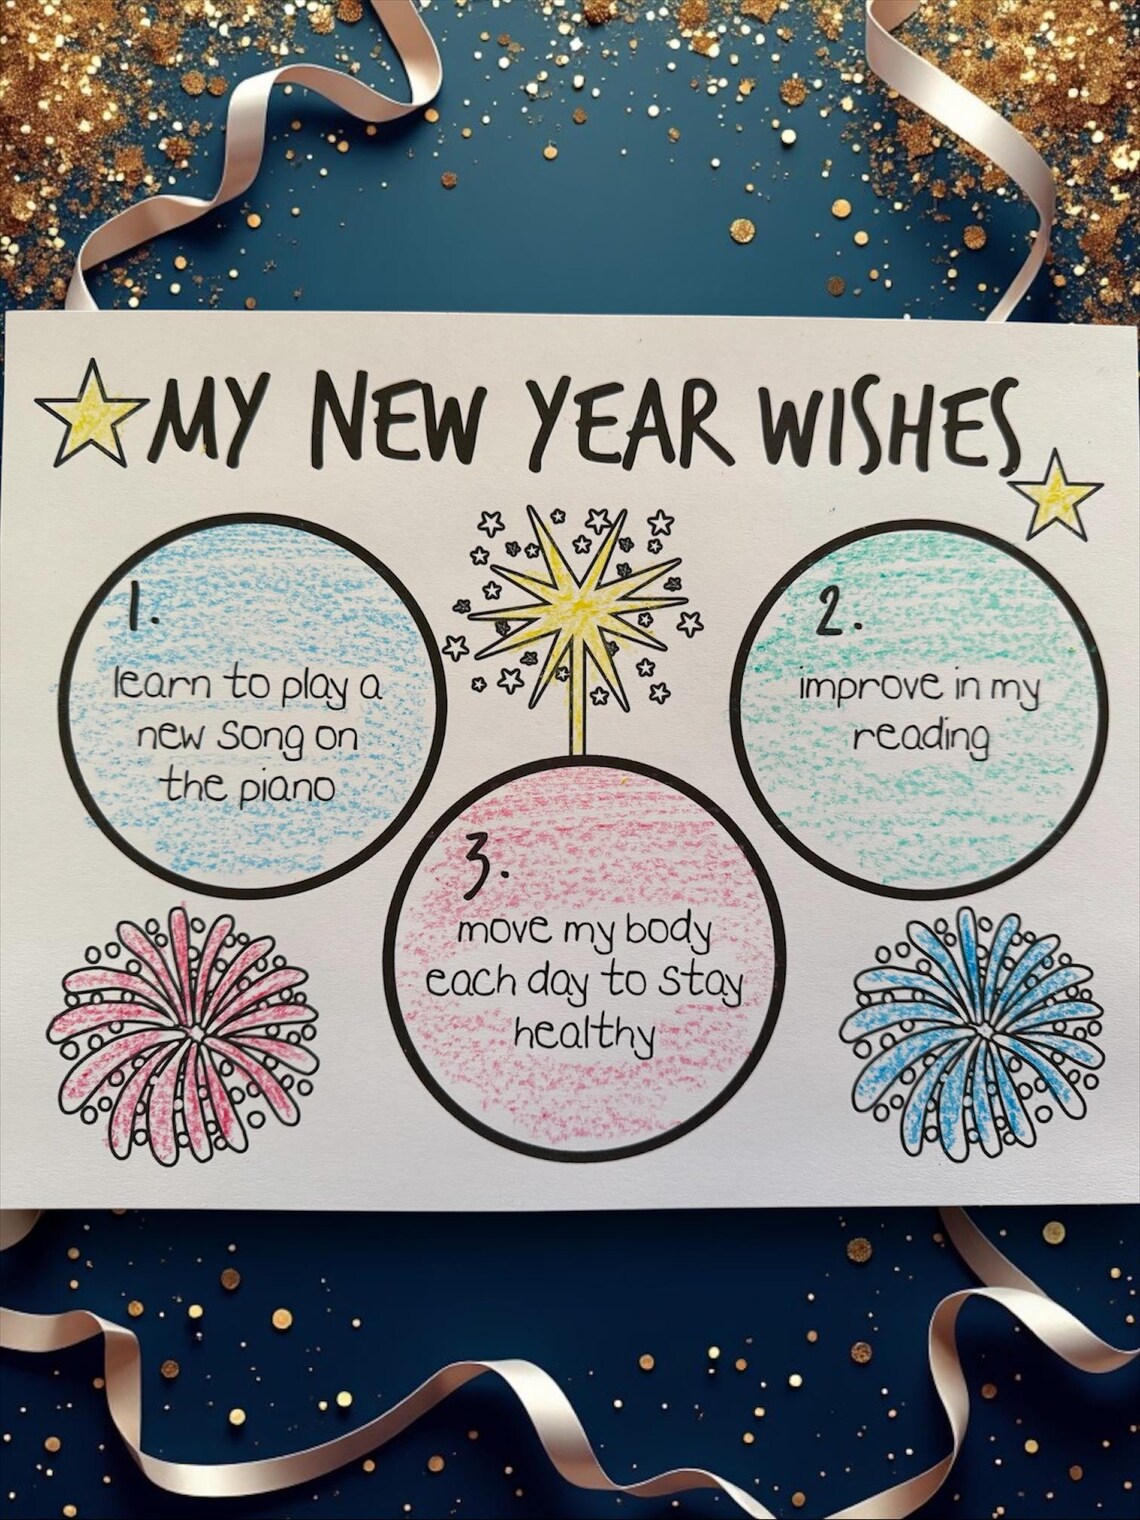 MY NEW YEAR WISHES
1.
learn to play a
new song on
the piano
2.
improve in my
reading
3.
move my body
each day to stay
healthy